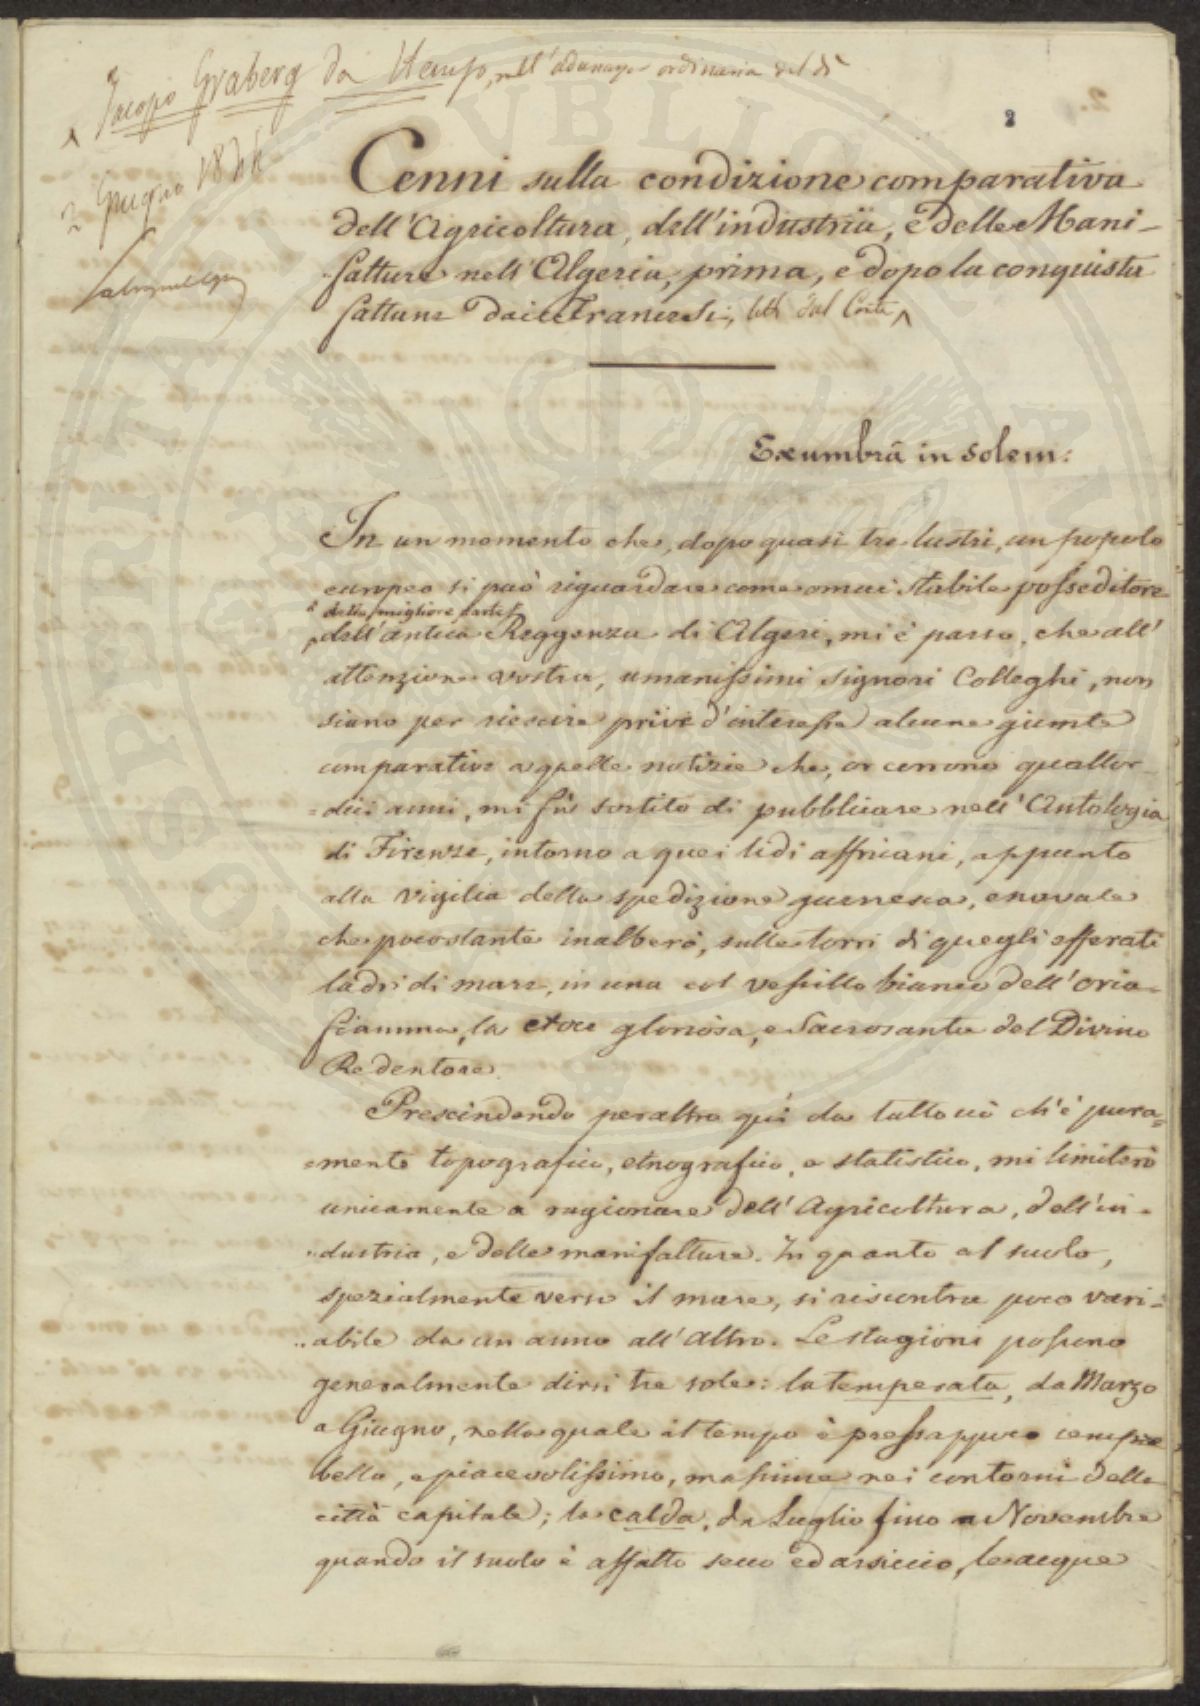 Jacopo Graberg da Hemso, nell'adunanza ordinaria del dì
2 Giugno 1844
2
Cenni sulla condizione comparativa
dell'Agricoltura, dell'industria, e delle Mani-
fatture nell'Algeria, prima, e dopo la conquista
fattane dai Francesi; letti dal Conte ^
Ex umbrâ in solem:
In un momento che, dopo quasi tre lustri, un popolo
europeo si può riguardare come omai stabile posseditore
della migliore parte
dell'antica Reggenza di Algeri, mi è parso, che all'
attenzione vostra, umanissimi signori Colleghi, non
siano per riescire prive d'interesse alcune giunte
comparative a quelle notizie che, or corrono quattor-
=dici anni, mi fù sortito di pubblicare nell'Antologia
di Firenze, intorno a quei lidi affricani, appunto
alla vigilia della spedizione guerresca, e navale
che pocostante inalberò, sulle torri di quegli efferati
ladri di mare, in una col vessillo bianco dell'oria-
fiamma, la croce gloriosa, e Sacrosanta del Divino
Redentore.
Prescindendo peraltro quì da tutto ciò ch'è pura=
=mente topografico, etnografico, e statistico, mi limiterò
unicamente a ragionare dell'Agricoltura, dell'in-
dustria, e delle manifatture. In quanto al suolo,
spezialmente verso il mare, si riscontra poco vari-
abile da un anno all'altro. Le stagioni possono
generalmente dirsi tre sole: la temperata, da Marzo
a Giugno, nella quale il tempo è pressappoco sempre
bello, e piacevolissimo, massime nei contorni della
città capitale; la calda, da Luglio fino a Novembre
quando il suolo è affatto secco ed arsiccio, le acque